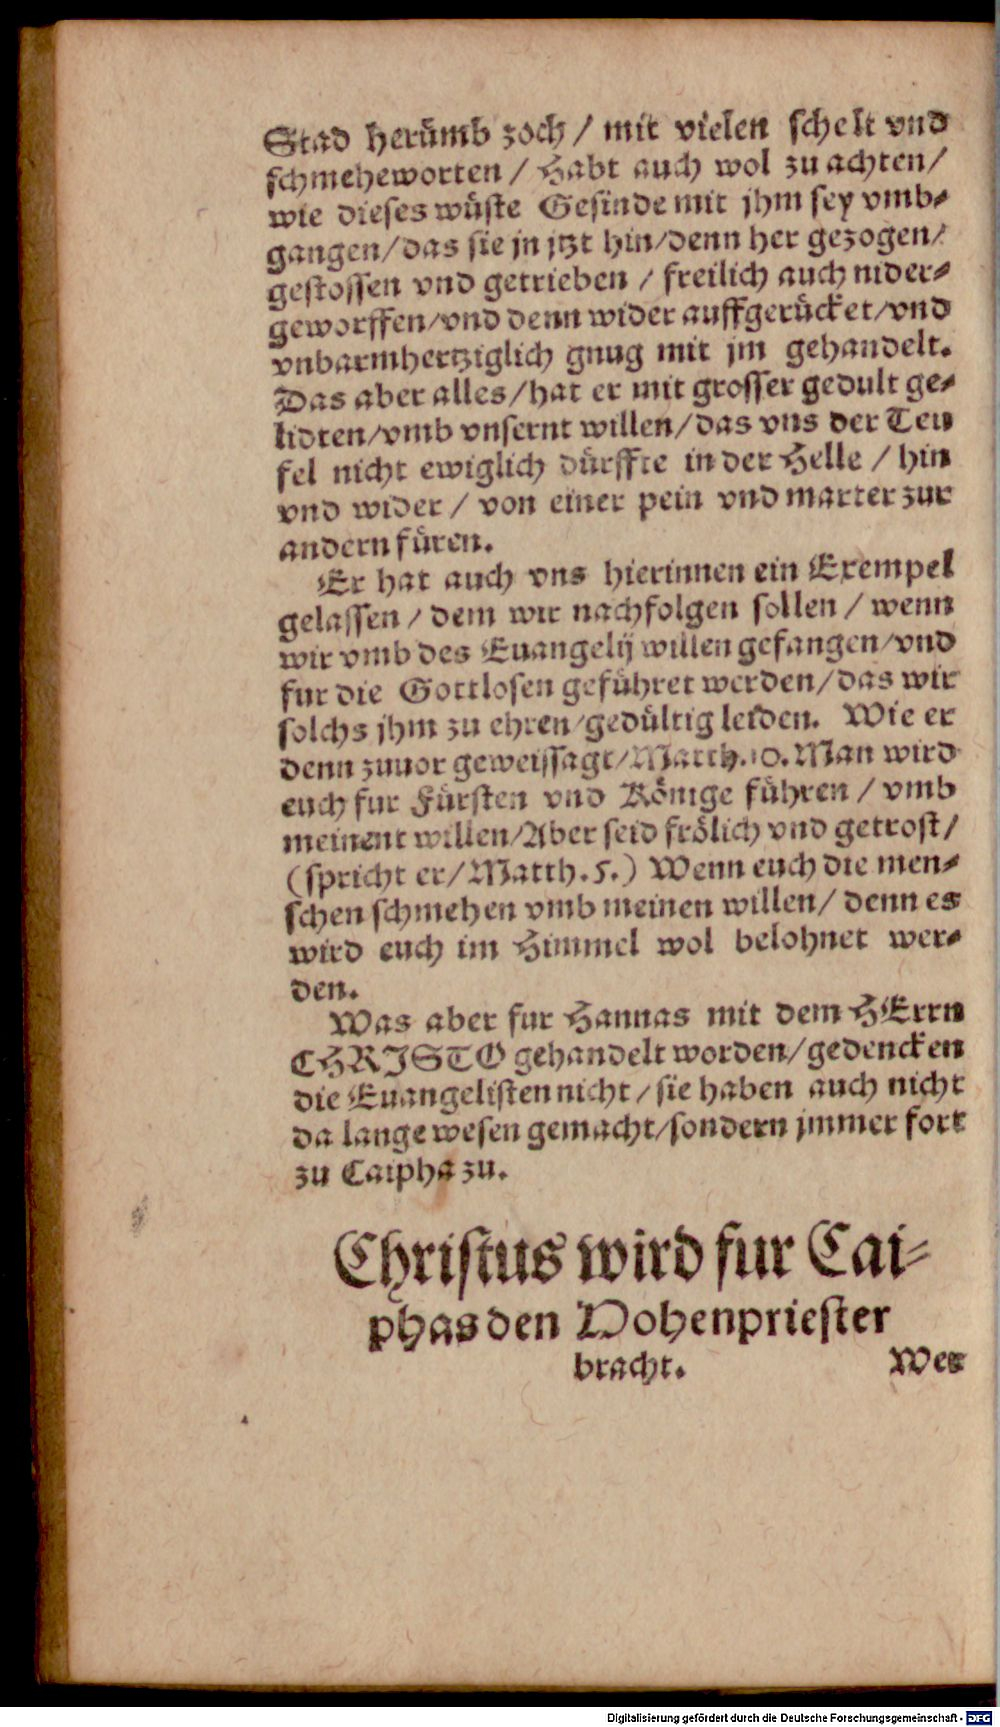 Stad herümb zoch / mit vielen schelt vnd
schmeheworten / Habt auch wol zu achten /
wie dieses wüste Gesinde mit jhm sey vmb-
gangen / das sie jn jtzt hin / denn her gezogen /
gestossen vnd getrieben / freilich auch nider-
geworffen / vnd denn wider auffgerücket / vnd
vnbarmhertziglich gnug mit jm gehandelt.
Das aber alles / hat er mit grosser gedult ge-
lidten / vmb vnsernt willen / das vns der Teu
fel nicht ewiglich dürffte in der Helle / hin
vnd wider / von einer pein vnd marter zur
andern füren.
Er hat auch vns hierinnen ein Exempel
gelassen / dem wir nachfolgen sollen / wenn
wir vmb des Euangelij willen gefangen / vnd
fur die Gottlosen geführet werden / das wir
solchs jhm zu ehren / gedültig leiden. Wie er
denn zuuor geweissagt / Matth. 10. Man wird
euch fur Fürsten vnd Könige führen / vmb
meinent willen / Aber seid frölich vnd getrost /
(spricht er / Matth. 5.) Wenn euch die men-
schen schmehen vmb meinen willen / denn es
wird euch im Himmel wol belohnet wer-
den.
Was aber fur Hannas mit dem HErrn
CHRISTO gehandelt worden / gedencken
die Euangelisten nicht / sie haben auch nicht
da lange wesen gemacht / sondern jmmer fort
zu Caipha zu.
Christus wird fur Cai-
phas den Hohenpriester
bracht. Wes
Digitalisierung gefördert durch die Deutsche Forschungsgemeinschaft - DFG